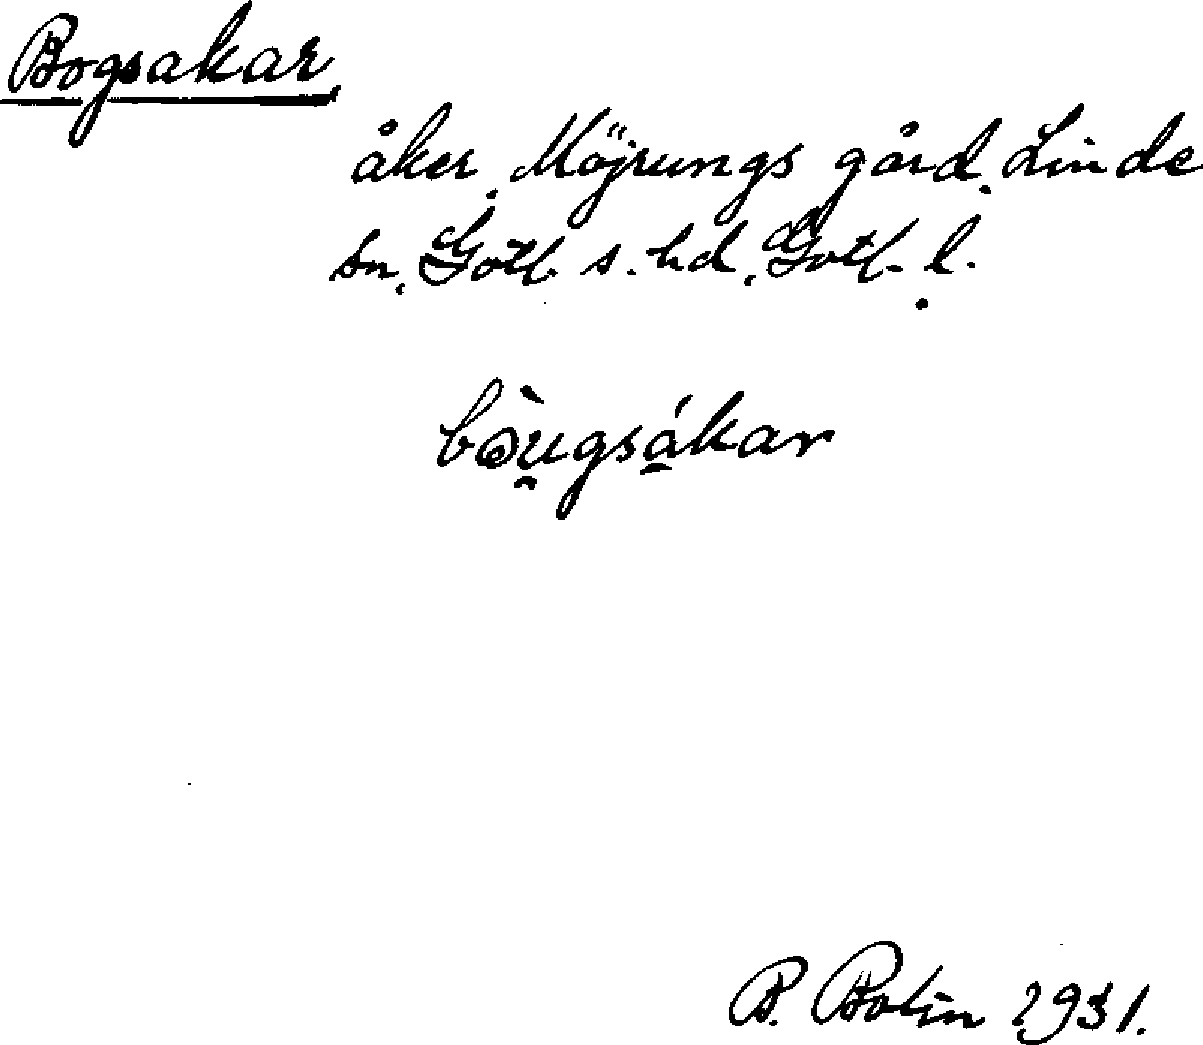 Bogsakar
åker, Möjrungs gård, Linde
sn, Gotl. s. hd, Gotl. l.
bòu̯gsá̱kar
B. Bolin 1931.